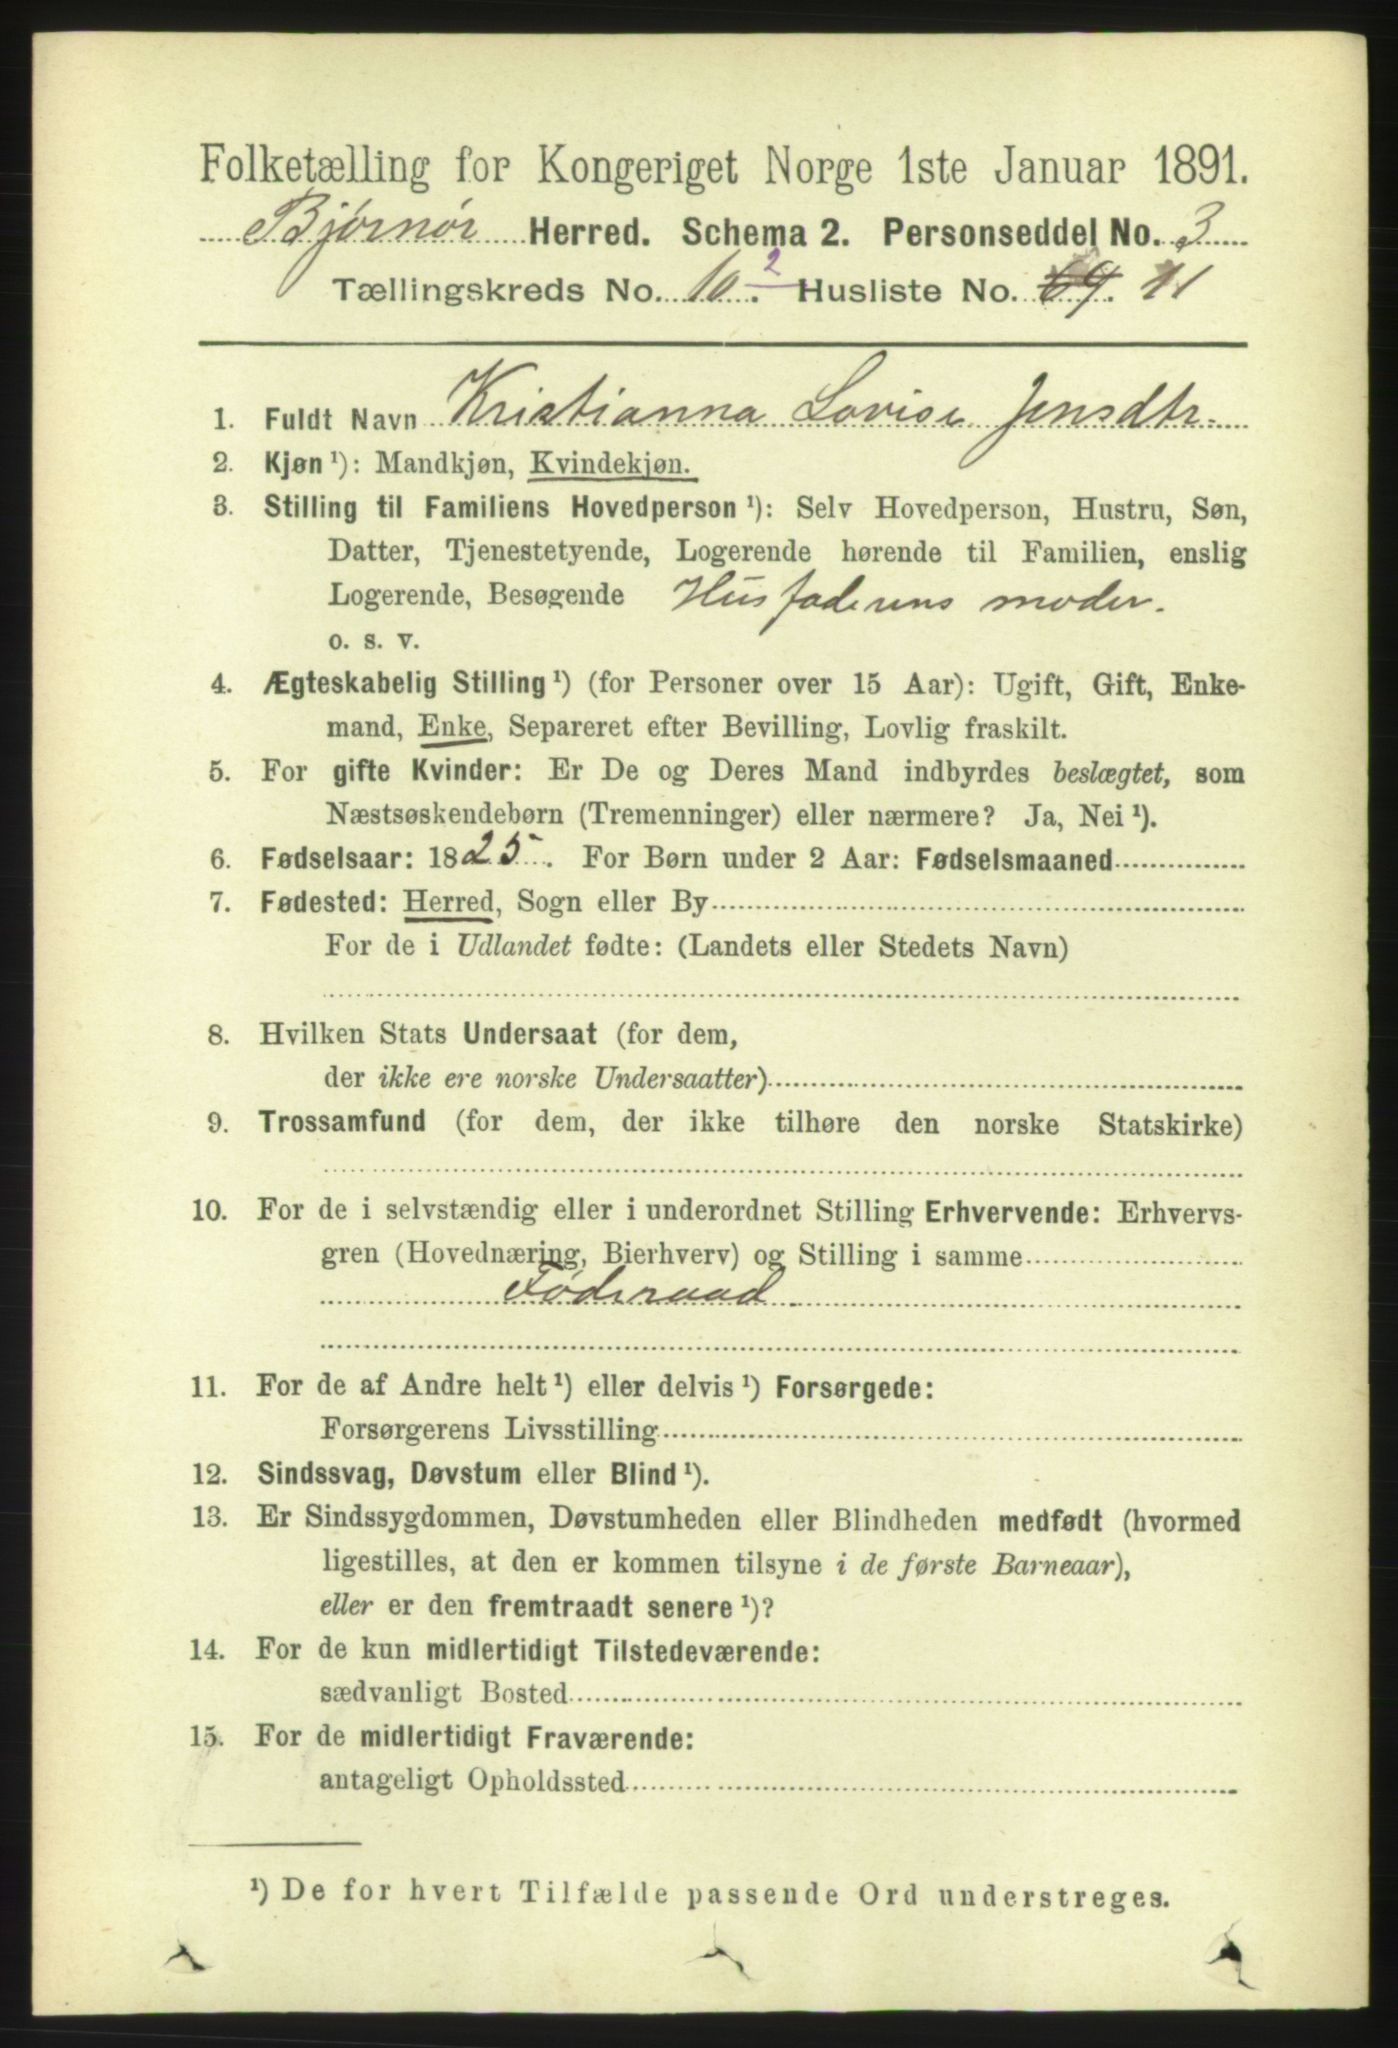 Folketælling for Kongeriget Norge 1ste Januar 1891.
Bjørnør Herred. Schema 2. Personseddel No. 3
Tællingskreds No. 10.2 Husliste No. 69. 11
1. Fuldt Navn Kristianna Lovise Jensdtr.
2. Kjøn ¹): Mandkjøn, Kvindekjøn.
3. Stilling til Familiens Hovedperson ¹): Selv Hovedperson, Hustru, Søn,
Datter, Tjenestetyende, Logerende hørende til Familien, enslig
Logerende, Besøgende Husfaderens moder.
o. s. v.
4. Ægteskabelig Stilling ¹) (for Personer over 15 Aar): Ugift, Gift, Enke-
mand, Enke, Separeret efter Bevilling, Lovlig fraskilt.
5. For gifte Kvinder: Er De og Deres Mand indbyrdes beslægtet, som
Næstsøskendebørn (Tremenninger) eller nærmere? Ja, Nei ¹).
6. Fødselsaar: 1825. For Børn under 2 Aar: Fødselsmaaned
7. Fødested: Herred, Sogn eller By
For de i Udlandet fødte: (Landets eller Stedets Navn)
8. Hvilken Stats Undersaat (for dem,
der ikke ere norske Undersaatter)
9. Trossamfund (for dem, der ikke tilhøre den norske Statskirke)
10. For de i selvstændig eller i underordnet Stilling Erhvervende: Erhvervs-
gren (Hovednæring, Bierhverv) og Stilling i samme
Føderaad.
11. For de af Andre helt ¹) eller delvis ¹) Forsørgede:
Forsørgerens Livsstilling
12. Sindssvag, Døvstum eller Blind ¹).
13. Er Sindssygdommen, Døvstumheden eller Blindheden medfødt (hvormed
ligestilles, at den er kommen tilsyne i de første Barneaar),
eller er den fremtraadt senere ¹)?
14. For de kun midlertidigt Tilstedeværende:
sædvanligt Bosted
15. For de midlertidigt Fraværende:
antageligt Opholdssted
¹) De for hvert Tilfælde passende Ord understreges.